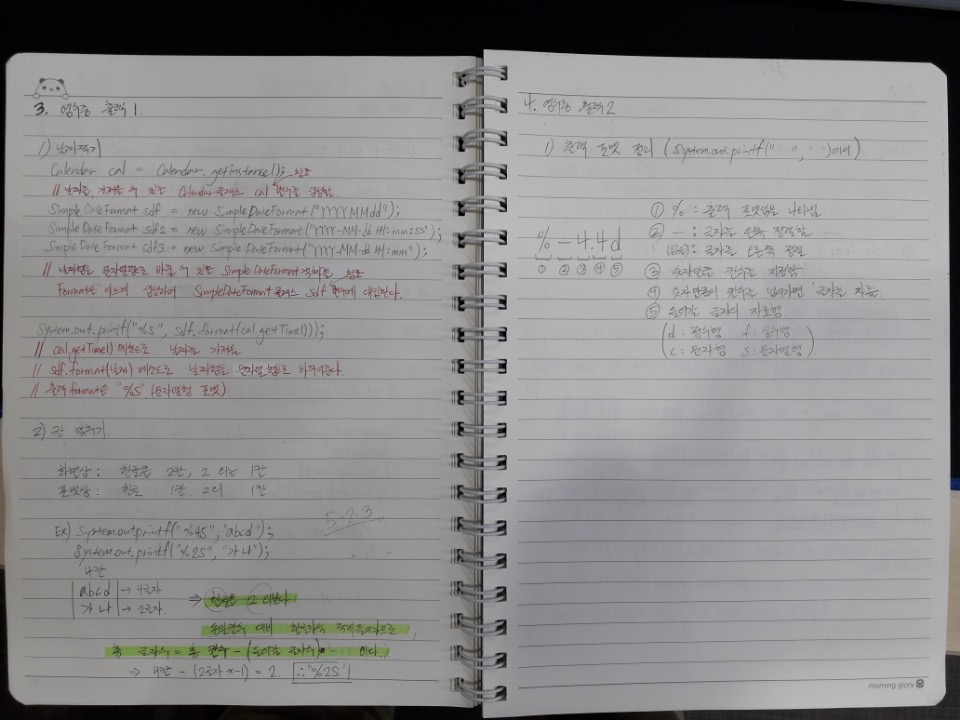 3. 영수증 출력 1.
1) 날짜찍기
Calendar cal = Calendar.getInstance();
// 날짜를 가져올 수 있는 Calendar 클래스 cal 변수를 생성함
SimpleDateFormat sdf = new SimpleDateFormat("YYYYMMdd");
SimpleDateFormat sdf2 = new SimpleDateFormat("YYYY-MM-dd HH:mm:ss");
SimpleDateFormat sdf3 = new SimpleDateFormat("YYYY.MM.dd HH:mm");
// 날짜형을 문자열형으로 바꿀 수 있는 SimpleDateFormat
Format은 SimpleDateFormat 클래스 sdf 변수에 대입한다.
System.out.printf("%s", sdf.format(cal.getTime()));
// cal.getTime() 메소드로 날짜를 가져옴
// sdf.format(날짜) 메소드로 날짜형을 문자열형으로 바꿔준다.
// 출력 format은 "%s" (문자열형 포맷)
2) 칸 맞추기
화면상 : 한글은 2칸, 그 외는 1칸
포맷상 : 한글 1칸, 그외 1칸
Ex) System.out.printf("%4s", "abcd");
System.out.printf("%2s", "가나");
4칸
abcd → 4글자
가나 → 2글자
⇒ 한글은
총 글자수 = 총 칸수 - (들어갈 글자수) 이다.
⇒ 4칸 - (2글자 *-1) = 2. ∴ "%2s"
4. 영수증 출력 2
1) 출력 포맷 정리 (System.out.printf(" ", )이다)
% - 4.4d
① ② ③ ④ ⑤
① % : 출력 포맷임을 나타냄
② - : 글자를 왼쪽 정렬함
(없음) : 글자를 오른쪽 정렬
③ 숫자만큼 칸수를 지정함
④ 숫자만큼의 칸수를 넘어가면 글자를 자름.
⑤ 들어갈 글자의 자료형
d : 정수형 f : 실수형
c : 문자형 s : 문자열형
morning glory